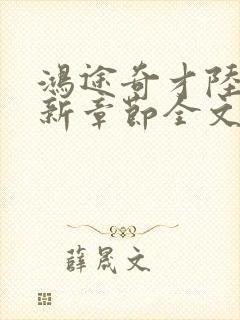 鴻途奇才陸
新章節全文
薛晟文